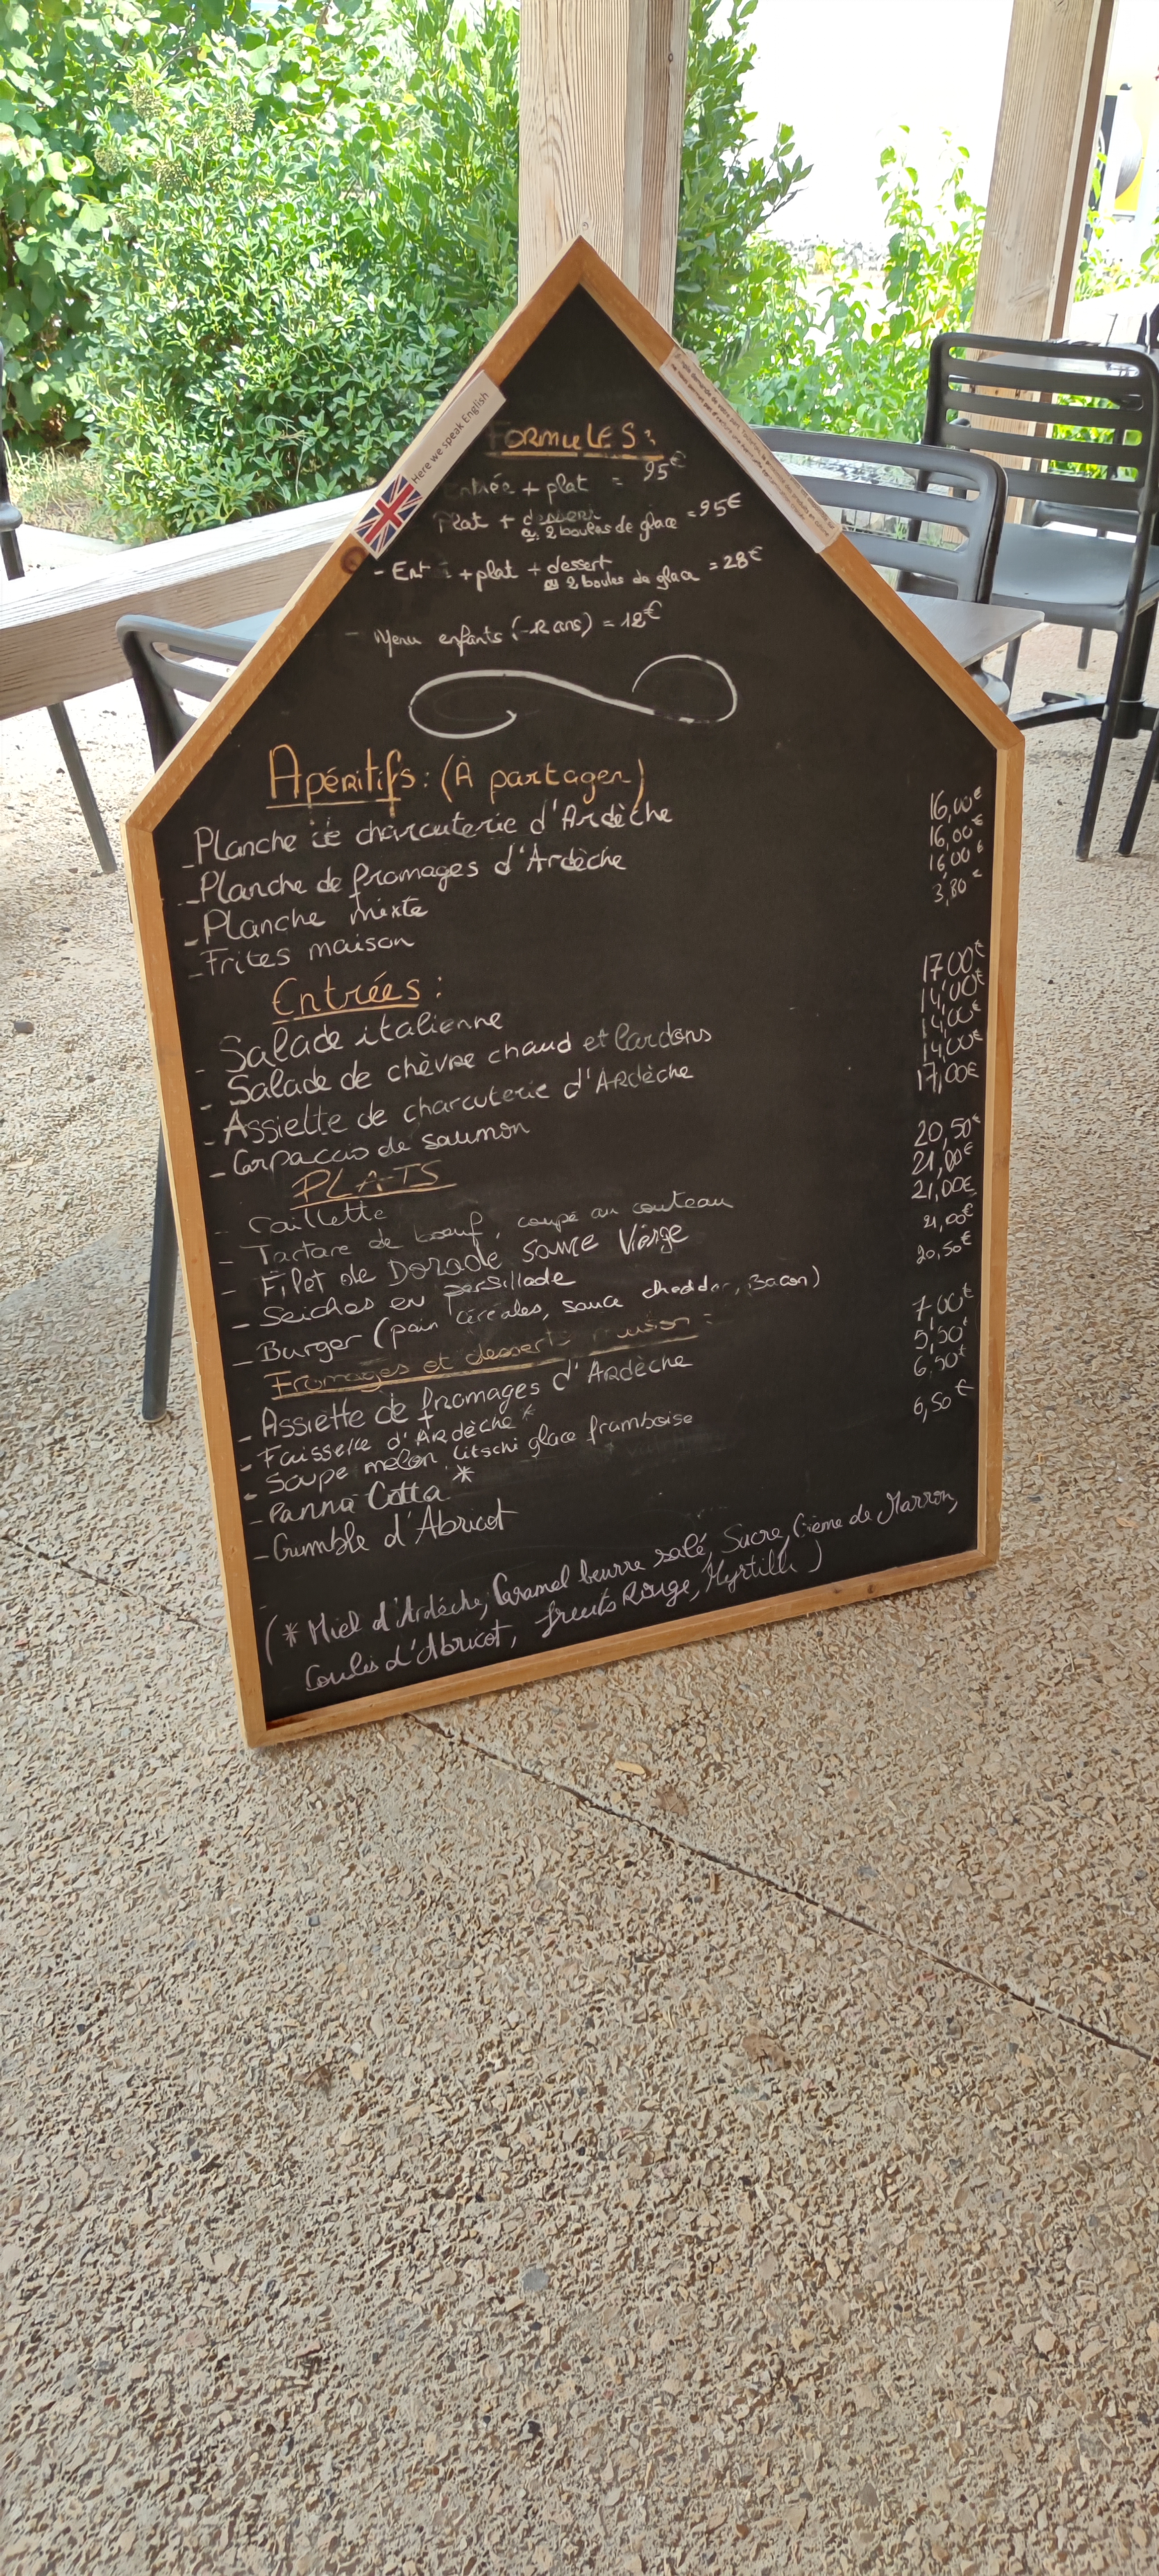 Here we speak English
FORMULES:
Entrée + plat = 25€
Plat + dessert
ou 2 boules de glace = 25€
- Ent é + plat + dessert
ou 2 boules de glace = 28€
- Menu enfants (-12 ans) = 12€
Apéritifs: (À partager)
- Planche de charcuterie d'Ardèche 16,00€
- Planche de fromages d'Ardèche 16,00€
- Planche mixte 16,00€
- Frites maison 3,80€
Entrées:
- Salade italienne 17,00€
- Salade de chèvre chaud et lardons 14,00€
- Assiette de charcuterie d'Ardèche 14,00€
- Carpaccio de saumon 14,00€
PLATS 17,00€
- Caillette 20,50€
- Tartare de boeuf, coupé au couteau 21,00€
- Filet de Dorade sauce Vierge 21,00€
- Seiches en persillade 21,00€
- Burger (pain céréales, sauce cheddar, Bacon) 20,50€
Fromages et desserts maison:
- Assiette de fromages d'Ardèche 7,00€
- Faisselle d'Ardèche * 5,50€
- Soupe melon, litschi glace framboise 6,50€
- Panna Cotta * 6,50€
- Crumble d'Abricot
(* Miel d'Ardèche, Caramel beurre salé, Sucre, Crème de Marron,
Coulis d'Abricot, fruits Rouge, Myrtille)